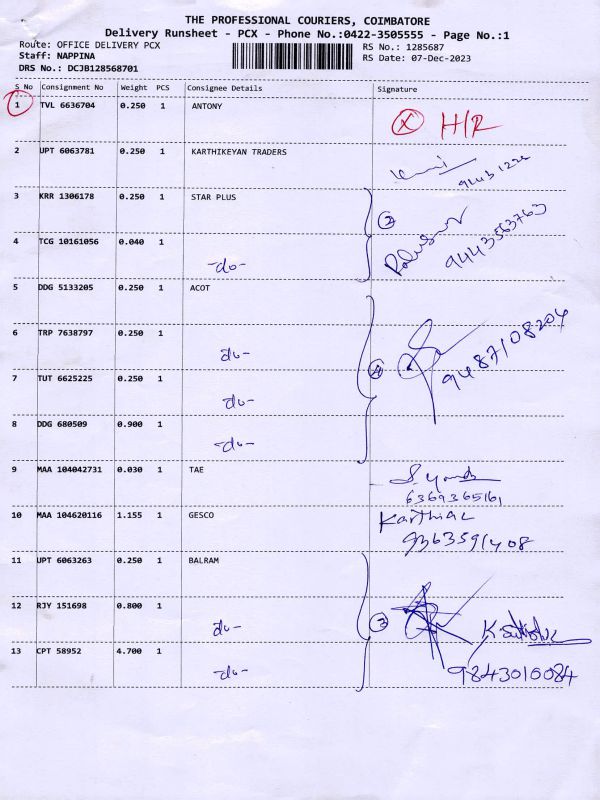 THE PROFESSIONAL COURIERS, COIMBATORE
Delivery Runsheet - PCX - Phone No.:0422-3505555 - Page No.:1
Route: OFFICE DELIVERY PCX RS No.: 1285687
Staff: NAPPINA RS Date: 07-Dec-2023
DRS No.: DCJB128568701
S No Consignment No Weight PCS Consignee Details Signature
1 TVL 6636704 0.250 1 ANTONY X H/R
2 UPT 6063781 0.250 1 KARTHIKEYAN TRADERS
3 KRR 1306178 0.250 1 STAR PLUS 2
9443563763
4 TCG 10161056 0.040 1
-do-
5 DDG 5133205 0.250 1 ACOT
6 TRP 7638797 0.250 1 9487108204
-do-
7 TUT 6625225 0.250 1 4
-do-
8 DDG 680509 0.900 1
-do-
9 MAA 104042731 0.030 1 TAE
6369365161
10 MAA 104620116 1.155 1 GESCO Karthick
9363591408
11 UPT 6063263 0.250 1 BALRAM
12 RJY 151698 0.800 1 3
-do-
13 CPT 58952 4.700 1
-do- 9843010084